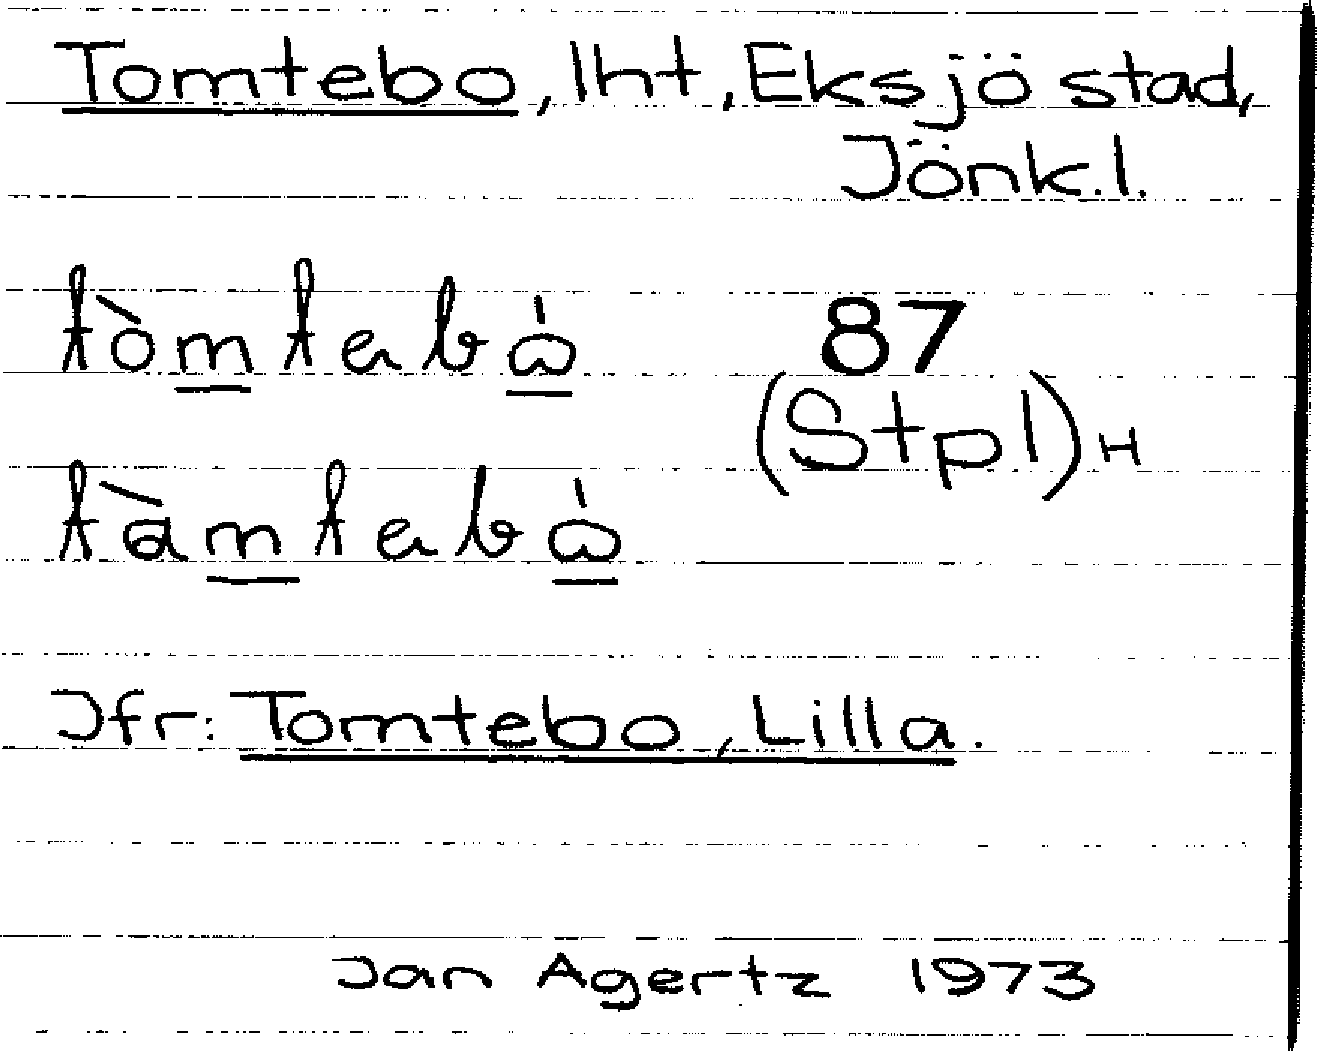 Tomtebo, lht, Eksjö stad,
Jönk.l.
tòmtebò 87
(Stpl)H
tàmtebò
Jfr: Tomtebo, Lilla.
Jan Agertz 1973